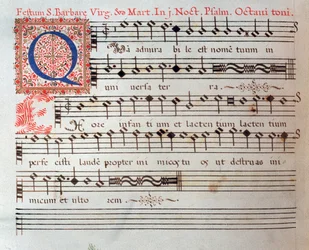 Festum S. Barbaræ Virg. Mart. In j. Noct. Psalm. Octavi toni.
Quā admira bi le est nomē tuum in
uni uersa ter ra.
Ex ore infan tium et lacten tium lacten tium
perfe cisti laudē propter ini micos tu os ut destruas ini
micum et ulto rem